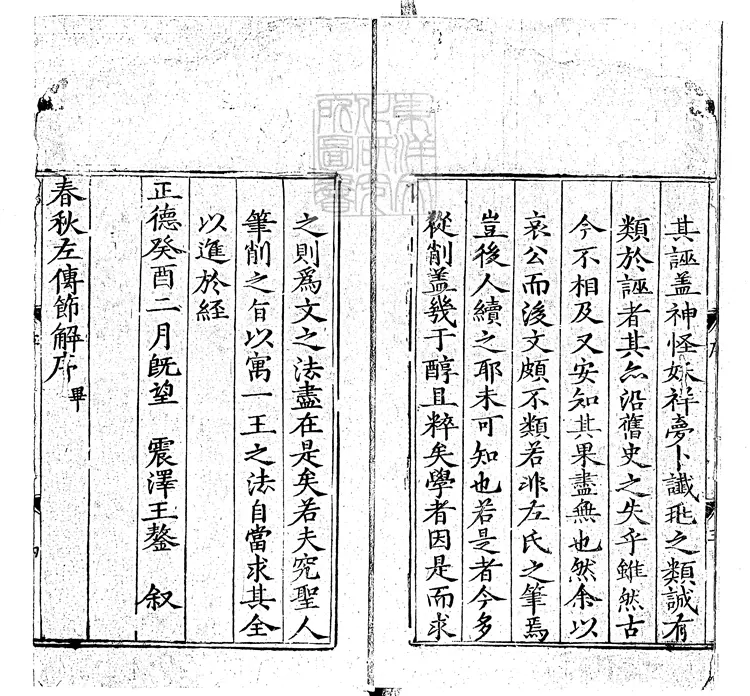 其誣盖神怪妖祥夢卜讖兆之類誠有
類於誣者其亦沿舊史之失乎雖然古
今不相及又安知其果盡無也然余以
哀公而後文頗不類若非左氏之筆焉
豈後人續之耶未可知也若是者今多
從削盖幾于醇且粹矣學者因是而求
之則爲文之法盡在是矣若夫究聖人
筆削之旨以寓一王之法自當求其全
以進於經
正德癸酉二月旣望 震澤王鏊 叙
春秋左傳節解序 畢